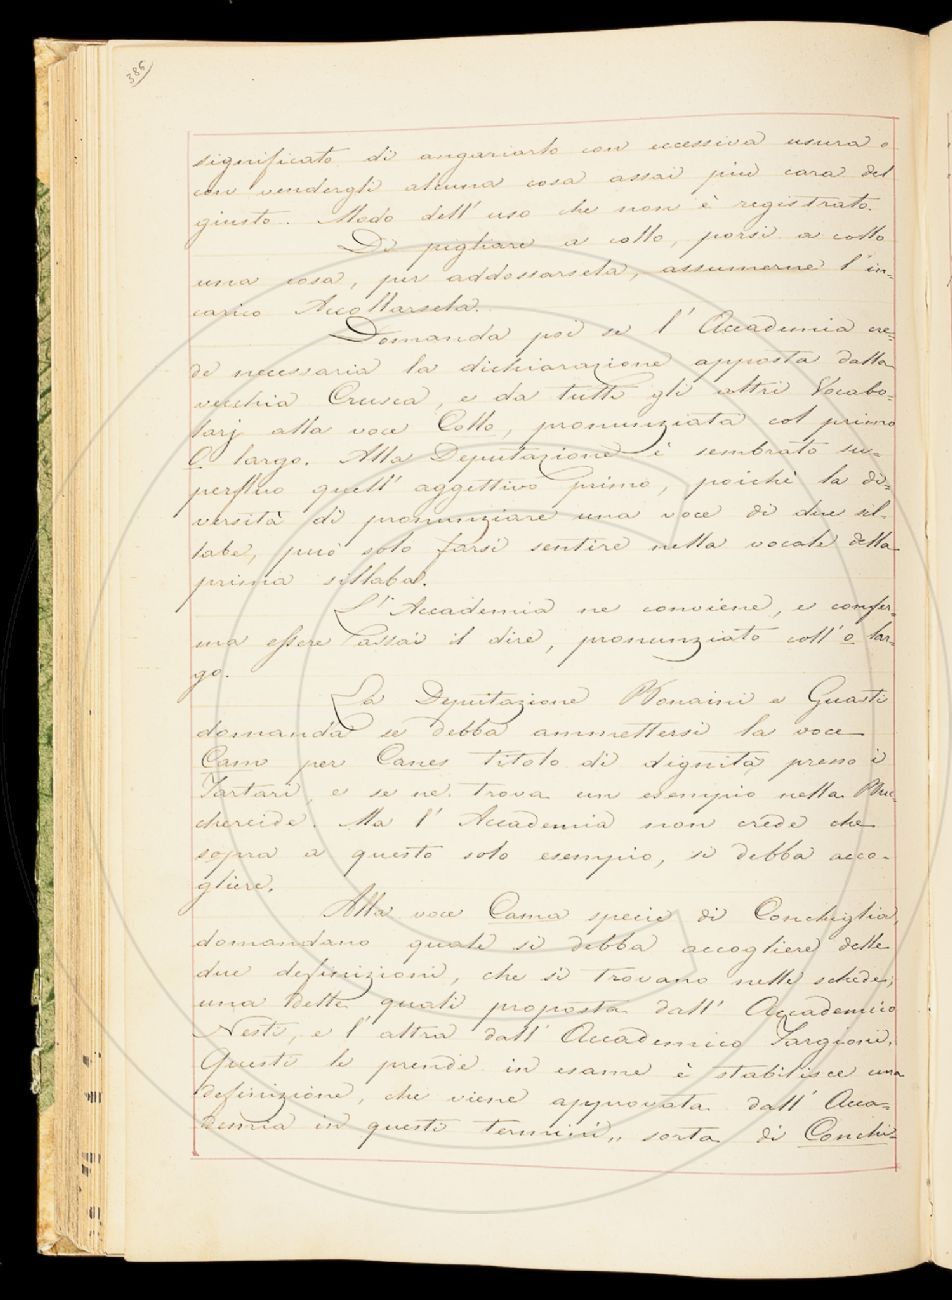 386
significato di angariarlo con eccessiva usura o
con vendergli alcuna cosa assai più cara del
giusto. Modo dell' uso che non è registrato.
Di pigliare a collo, porsi a collo
una cosa, per addossarsela, assumerne l' in-
carico Accollarsela.
Domanda poi se l' Accademia cre-
de necessaria la dichiarazione apposta dalla
vecchia Crusca, e da tutti gli altri Vocabo-
larj alla voce Collo, pronunziata col primo
O largo. Alla Deputazione è sembrato su-
perfluo quell' aggettivo primo, poichè la di-
versità di pronunziare una voce di due sil-
labe, può solo farsi sentire nella vocale della
prima sillaba.
L' Accademia ne conviene, e confer-
ma essere assai il dire, pronunziato coll' o lar-
go.
La Deputazione Bonaini e Guasti
domanda se debba ammettersi la voce
Cam per Canes titolo di dignità presso i
Tartari, e se ne trova un esempio nella Mar-
chereide. Ma l' Accademia non crede che
sopra a questo solo esempio, si debba acco-
gliere.
Alla voce Cama specie di Conchiglia,
domandano quale si debba accogliere delle
due definizioni, che si trovano nelle schede,
una delle quali proposta dall' Accademico
Nesti, e l' altra dall' Accademico Targioni.
Queste le prende in esame e stabilisce una
definizione, che viene approvata dall' Acca-
demia in questi termini „ sorta di Conchi-